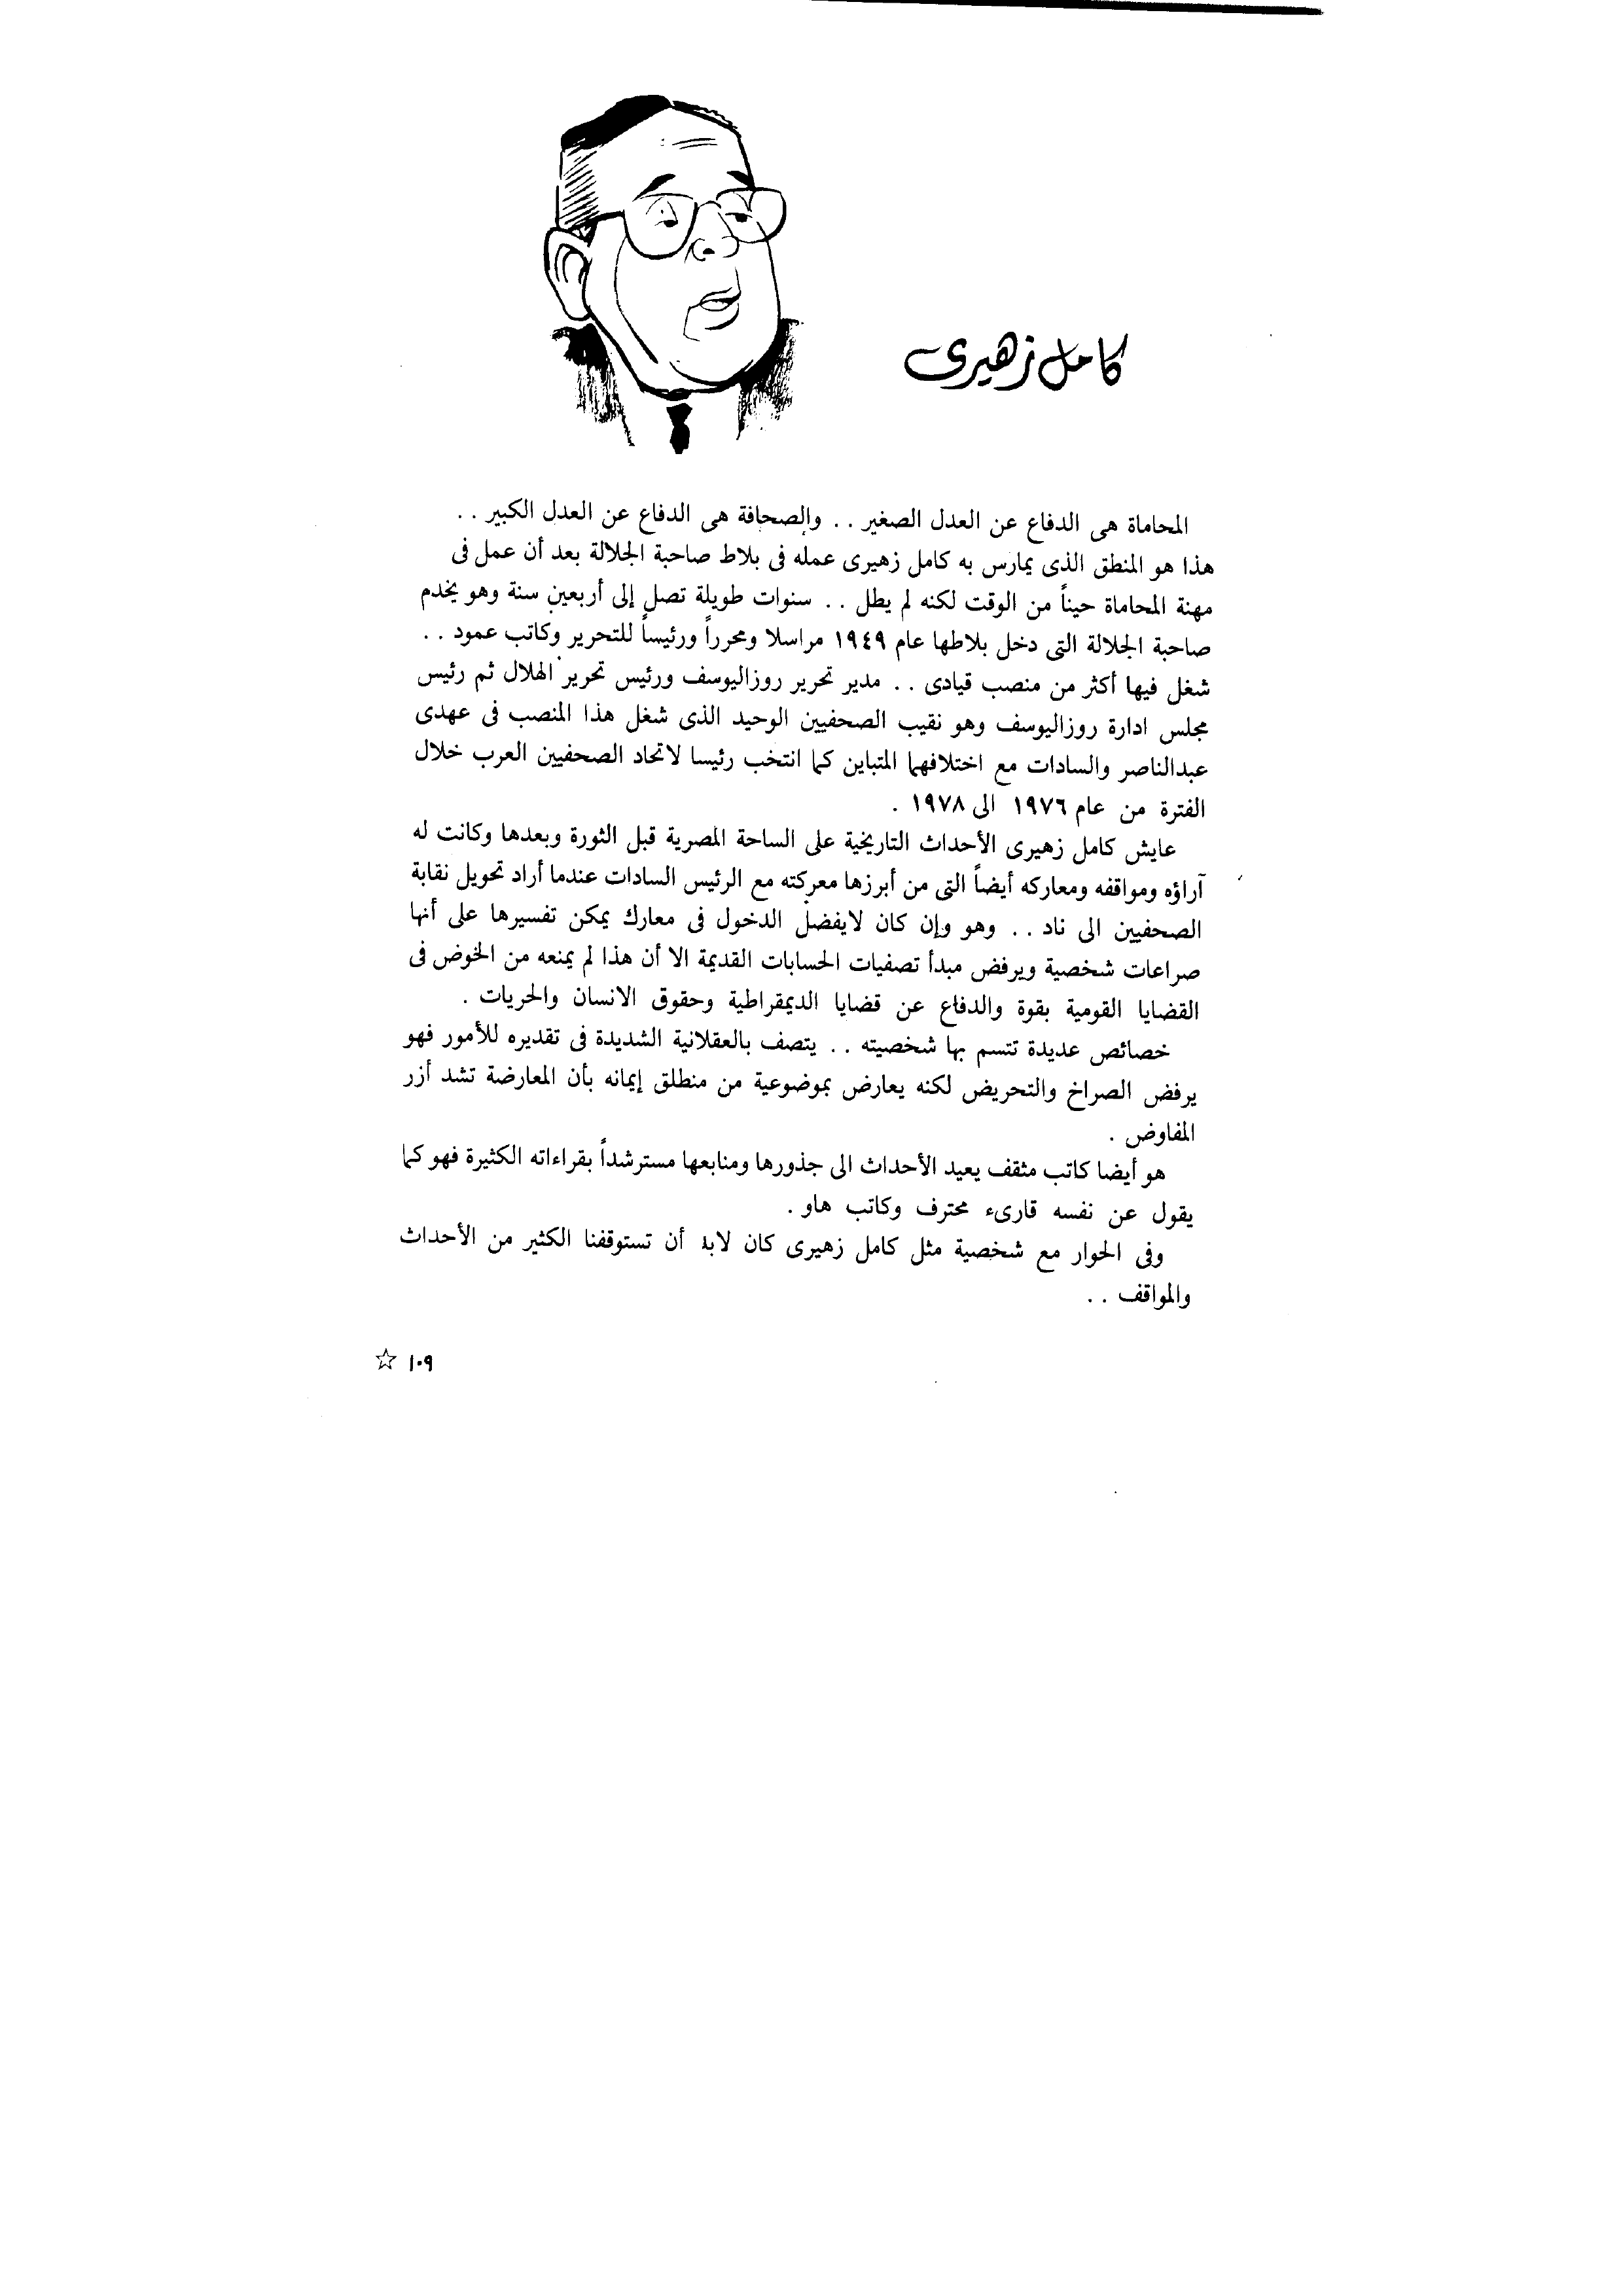 كامل زهيرى
المحاماة هى الدفاع عن العدل الصغير . . والصحافة هى الدفاع عن العدل الكبير . .
هذا هو المنطق الذى يمارس به كامل زهيرى عمله فى بلاط صاحبة الجلالة بعد أن عمل فى
مهنة المحاماة حيناً من الوقت لكنه لم يطل . . سنوات طويلة تصل إلى أربعين سنة وهو يخدم
صاحبة الجلالة التى دخل بلاطها عام ١٩٤٩ مراسلا ومحرراً ورئيساً للتحرير وكاتب عمود . .
شغل فيها أكثر من منصب قيادى . . مدير تحرير روزاليوسف ورئيس تحرير الهلال ثم رئيس
مجلس ادارة روزاليوسف وهو نقيب الصحفيين الوحيد الذى شغل هذا المنصب فى عهدى
عبدالناصر والسادات مع اختلافهما المتباين كما انتخب رئيسا لاتحاد الصحفيين العرب خلال
الفترة من عام ١٩٧٦ الى ١٩٧٨ .
عايش كامل زهيرى الأحداث التاريخية على الساحة المصرية قبل الثورة وبعدها وكانت له
آراؤه ومواقفه ومعاركه أيضاً التى من أبرزها معركته مع الرئيس السادات عندما أراد تحويل نقابة
الصحفيين الى ناد . . وهو وإن كان لايفضل الدخول فى معارك يمكن تفسيرها على أنها
صراعات شخصية ويرفض مبدأ تصفيات الحسابات القديمة الا أن هذا لم يمنعه من الخوض فى
القضايا القومية بقوة والدفاع عن قضايا الديمقراطية وحقوق الانسان والحريات .
خصائص عديدة تتسم بها شخصيته . . يتصف بالعقلانية الشديدة فى تقديره للأمور فهو
يرفض الصراخ والتحريض لكنه يعارض بموضوعية من منطلق إيمانه بأن المعارضة تشد أزر
المفاوض .
هو أيضا كاتب مثقف يعيد الأحداث الى جذورها ومنابعها مسترشداً بقراءاته الكثيرة فهو كما
يقول عن نفسه قارىء محترف وكاتب هاو .
وفى الحوار مع شخصية مثل كامل زهيرى كان لابد أن تستوقفنا الكثير من الأحداث
والمواقف . .
١٠٩ ☆